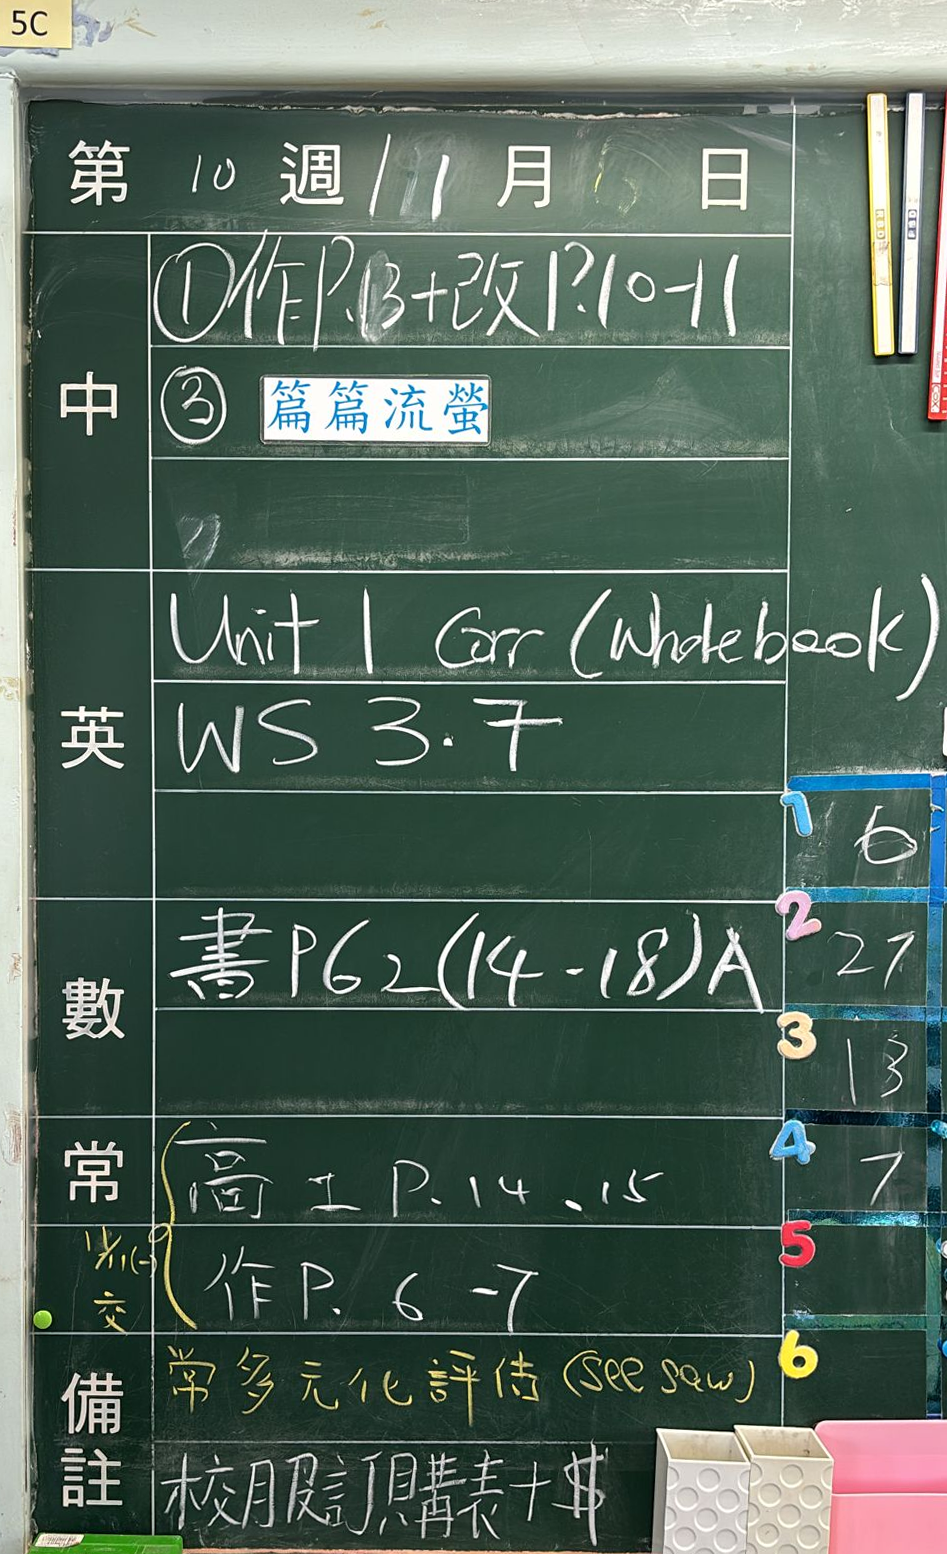 5C
第 10 週 11 月 日
中
① 作P.13+改P.10-11
③ 篇篇流螢
英
Unit 1 Corr (Whole book)
WS 3.7
數
書P62(14-18)A
常
高士P.14、15
作P. 6-7
交
備註
常多元化評估 (see saw)
校服訂購表+$
1 6
2 27
3 13
4 7
5
6